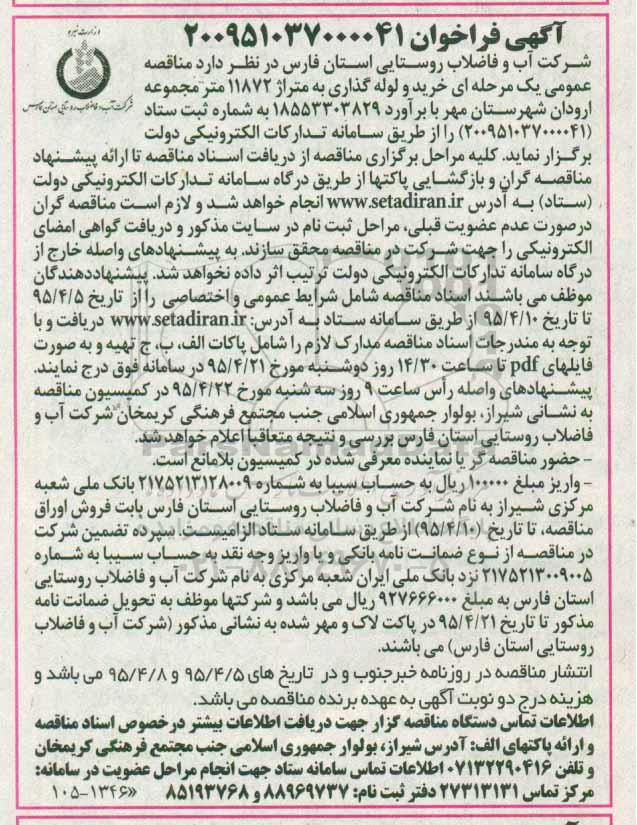 آگهی فراخوان ۲۰۰۹۵۱۰۳۷۰۰۰۰۴۱
وزارت نیرو
شرکت آب و فاضلاب روستایی استان فارس
شرکت آب و فاضلاب روستایی استان فارس در نظر دارد مناقصه
عمومی یک مرحله ای خرید و لوله گذاری به متراژ ۱۱۸۷۲ متر مجموعه
ارودان شهرستان مهر با برآورد ۱۸۵۵۳۳۰۳۸۲۹ به شماره ثبت ستاد
(۲۰۰۹۵۱۰۳۷۰۰۰۰۴۱) را از طریق سامانه تدارکات الکترونیکی دولت
برگزار نماید. کلیه مراحل برگزاری مناقصه از دریافت اسناد مناقصه تا ارائه پیشنهاد
مناقصه گران و بازگشایی پاکتها از طریق درگاه سامانه تدارکات الکترونیکی دولت
(ستاد) به آدرس www.setadiran.ir انجام خواهد شد و لازم است مناقصه گران
درصورت عدم عضویت قبلی، مراحل ثبت نام در سایت مذکور و دریافت گواهی امضای
الکترونیکی را جهت شرکت در مناقصه محقق سازند. به پیشنهادهای واصله خارج از
درگاه سامانه تدارکات الکترونیکی دولت ترتیب اثر داده نخواهد شد. پیشنهاددهندگان
موظف می باشند اسناد مناقصه شامل شرایط عمومی و اختصاصی را از تاریخ ۹۵/۴/۵
تا تاریخ ۹۵/۴/۱۰ از طریق سامانه ستاد به آدرس: www.setadiran.ir دریافت و با
توجه به مندرجات اسناد مناقصه مدارک لازم را شامل پاکات الف، ب، ج تهیه و به صورت
فایلهای pdf تا ساعت ۱۴/۳۰ روز دوشنبه مورخ ۹۵/۴/۲۱ در سامانه فوق درج نمایند.
پیشنهادهای واصله رأس ساعت ۹ روز سه شنبه مورخ ۹۵/۴/۲۲ در کمیسیون مناقصه
به نشانی شیراز، بولوار جمهوری اسلامی جنب مجتمع فرهنگی کریمخان شرکت آب و
فاضلاب روستایی استان فارس بررسی و نتیجه متعاقباً اعلام خواهد شد.
- حضور مناقصه گر یا نماینده معرفی شده در کمیسیون بلامانع است.
- واریز مبلغ ۱۰۰۰۰۰ ریال به حساب سیبا به شماره ۲۱۷۵۲۱۳۱۲۸۰۰۹ بانک ملی شعبه
مرکزی شیراز به نام شرکت آب و فاضلاب روستایی استان فارس بابت فروش اوراق
مناقصه، تا تاریخ (۹۵/۴/۱۰) از طریق سامانه ستاد الزامیست. سپرده تضمین شرکت
در مناقصه از نوع ضمانت نامه بانکی و یا واریز وجه نقد به حساب سیبا به شماره
۲۱۷۵۲۱۳۰۰۹۰۰۵ نزد بانک ملی ایران شعبه مرکزی به نام شرکت آب و فاضلاب روستایی
استان فارس به مبلغ ۹۲۷۶۶۶۰۰۰ ریال می باشد و شرکتها موظف به تحویل ضمانت نامه
مذکور تا تاریخ ۹۵/۴/۲۱ در پاکت لاک و مهر شده به نشانی مذکور (شرکت آب و فاضلاب
روستایی استان فارس) می باشند.
انتشار مناقصه در روزنامه خبرجنوب و در تاریخ های ۹۵/۴/۵ و ۹۵/۴/۸ می باشد و
هزینه درج دو نوبت آگهی به عهده برنده مناقصه می باشد.
اطلاعات تماس دستگاه مناقصه گزار جهت دریافت اطلاعات بیشتر درخصوص اسناد مناقصه
و ارائه پاکتهای الف: آدرس شیراز، بولوار جمهوری اسلامی جنب مجتمع فرهنگی کریمخان
و تلفن ۰۷۱۳۲۲۹۰۴۱۶ اطلاعات تماس سامانه ستاد جهت انجام مراحل عضویت در سامانه:
مرکز تماس ۲۷۳۱۳۱۳۱ دفتر ثبت نام: ۸۸۹۶۹۷۳۷ و ۸۵۱۹۳۷۶۸ «۱۰۵-۱۳۴۶